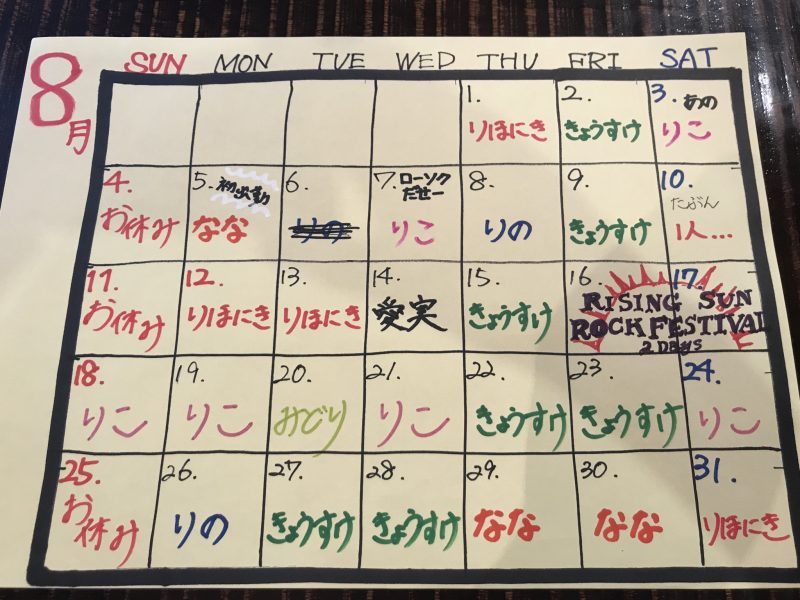 8月
SUN MON TUE WED THU FRI SAT
1.
りほにき
2.
きょうすけ
3. あの
りこ
4.
お休み
5. 初出勤
なな
6.
りの
7. ローソク
だせー
りこ
8.
りの
9.
きょうすけ
10.
たぶん
1人...
11.
お休み
12.
りほにき
13.
りほにき
14.
愛実
15.
きょうすけ
16. 17.
RISING SUN
ROCK FESTIVAL
2 Days
18.
りこ
19.
りこ
20.
みどり
21.
りこ
22.
きょうすけ
23.
きょうすけ
24.
りこ
25.
お
休み
26.
りの
27.
きょうすけ
28.
きょうすけ
29.
なな
30.
なな
31.
りほにき